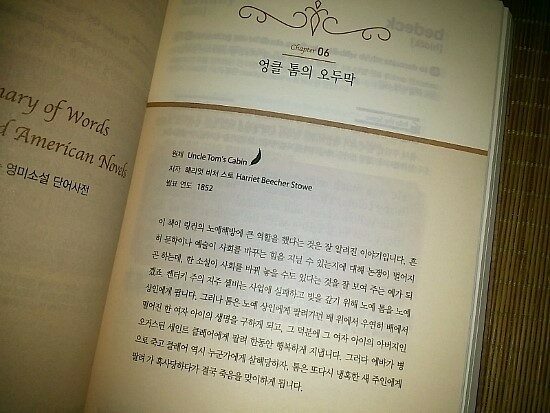 nary of Words
d American Novels
영미소설 단어사전
Chapter 06
엉클 톰의 오두막
원제 Uncle Tom's Cabin
저자 해리엇 비처 스토 Harriet Beecher Stowe
발표 연도 1852
이 책이 링컨의 노예해방에 큰 역할을 했다는 것은 잘 알려진 이야기입니다. 흔
히 문학이나 예술이 사회를 바꾸는 힘을 지닐 수 있는지에 대해 논쟁이 벌어지
곤 하는데, 한 소설이 사회를 바꿔 놓을 수도 있다는 것을 잘 보여 주는 예가 되
겠죠. 켄터키 주의 지주 셸비는 사업에 실패하고 빚을 갚기 위해 노예 톰을 노예
상인에게 팝니다. 그러나 톰은 노예 상인에게 팔려가던 배 위에서 우연히 배에서
떨어진 한 여자 아이의 생명을 구하게 되고, 그 덕분에 그 여자 아이의 아버지인
오거스틴 세인트 클레어에게 팔려 한동안 행복하게 지냅니다. 그러다 에바가 병
으로 죽고 클레어 역시 누군가에게 살해당하자, 톰은 또다시 냉혹한 새 주인에게
팔려 가 혹사당하다가 결국 죽음을 맞이하게 됩니다.